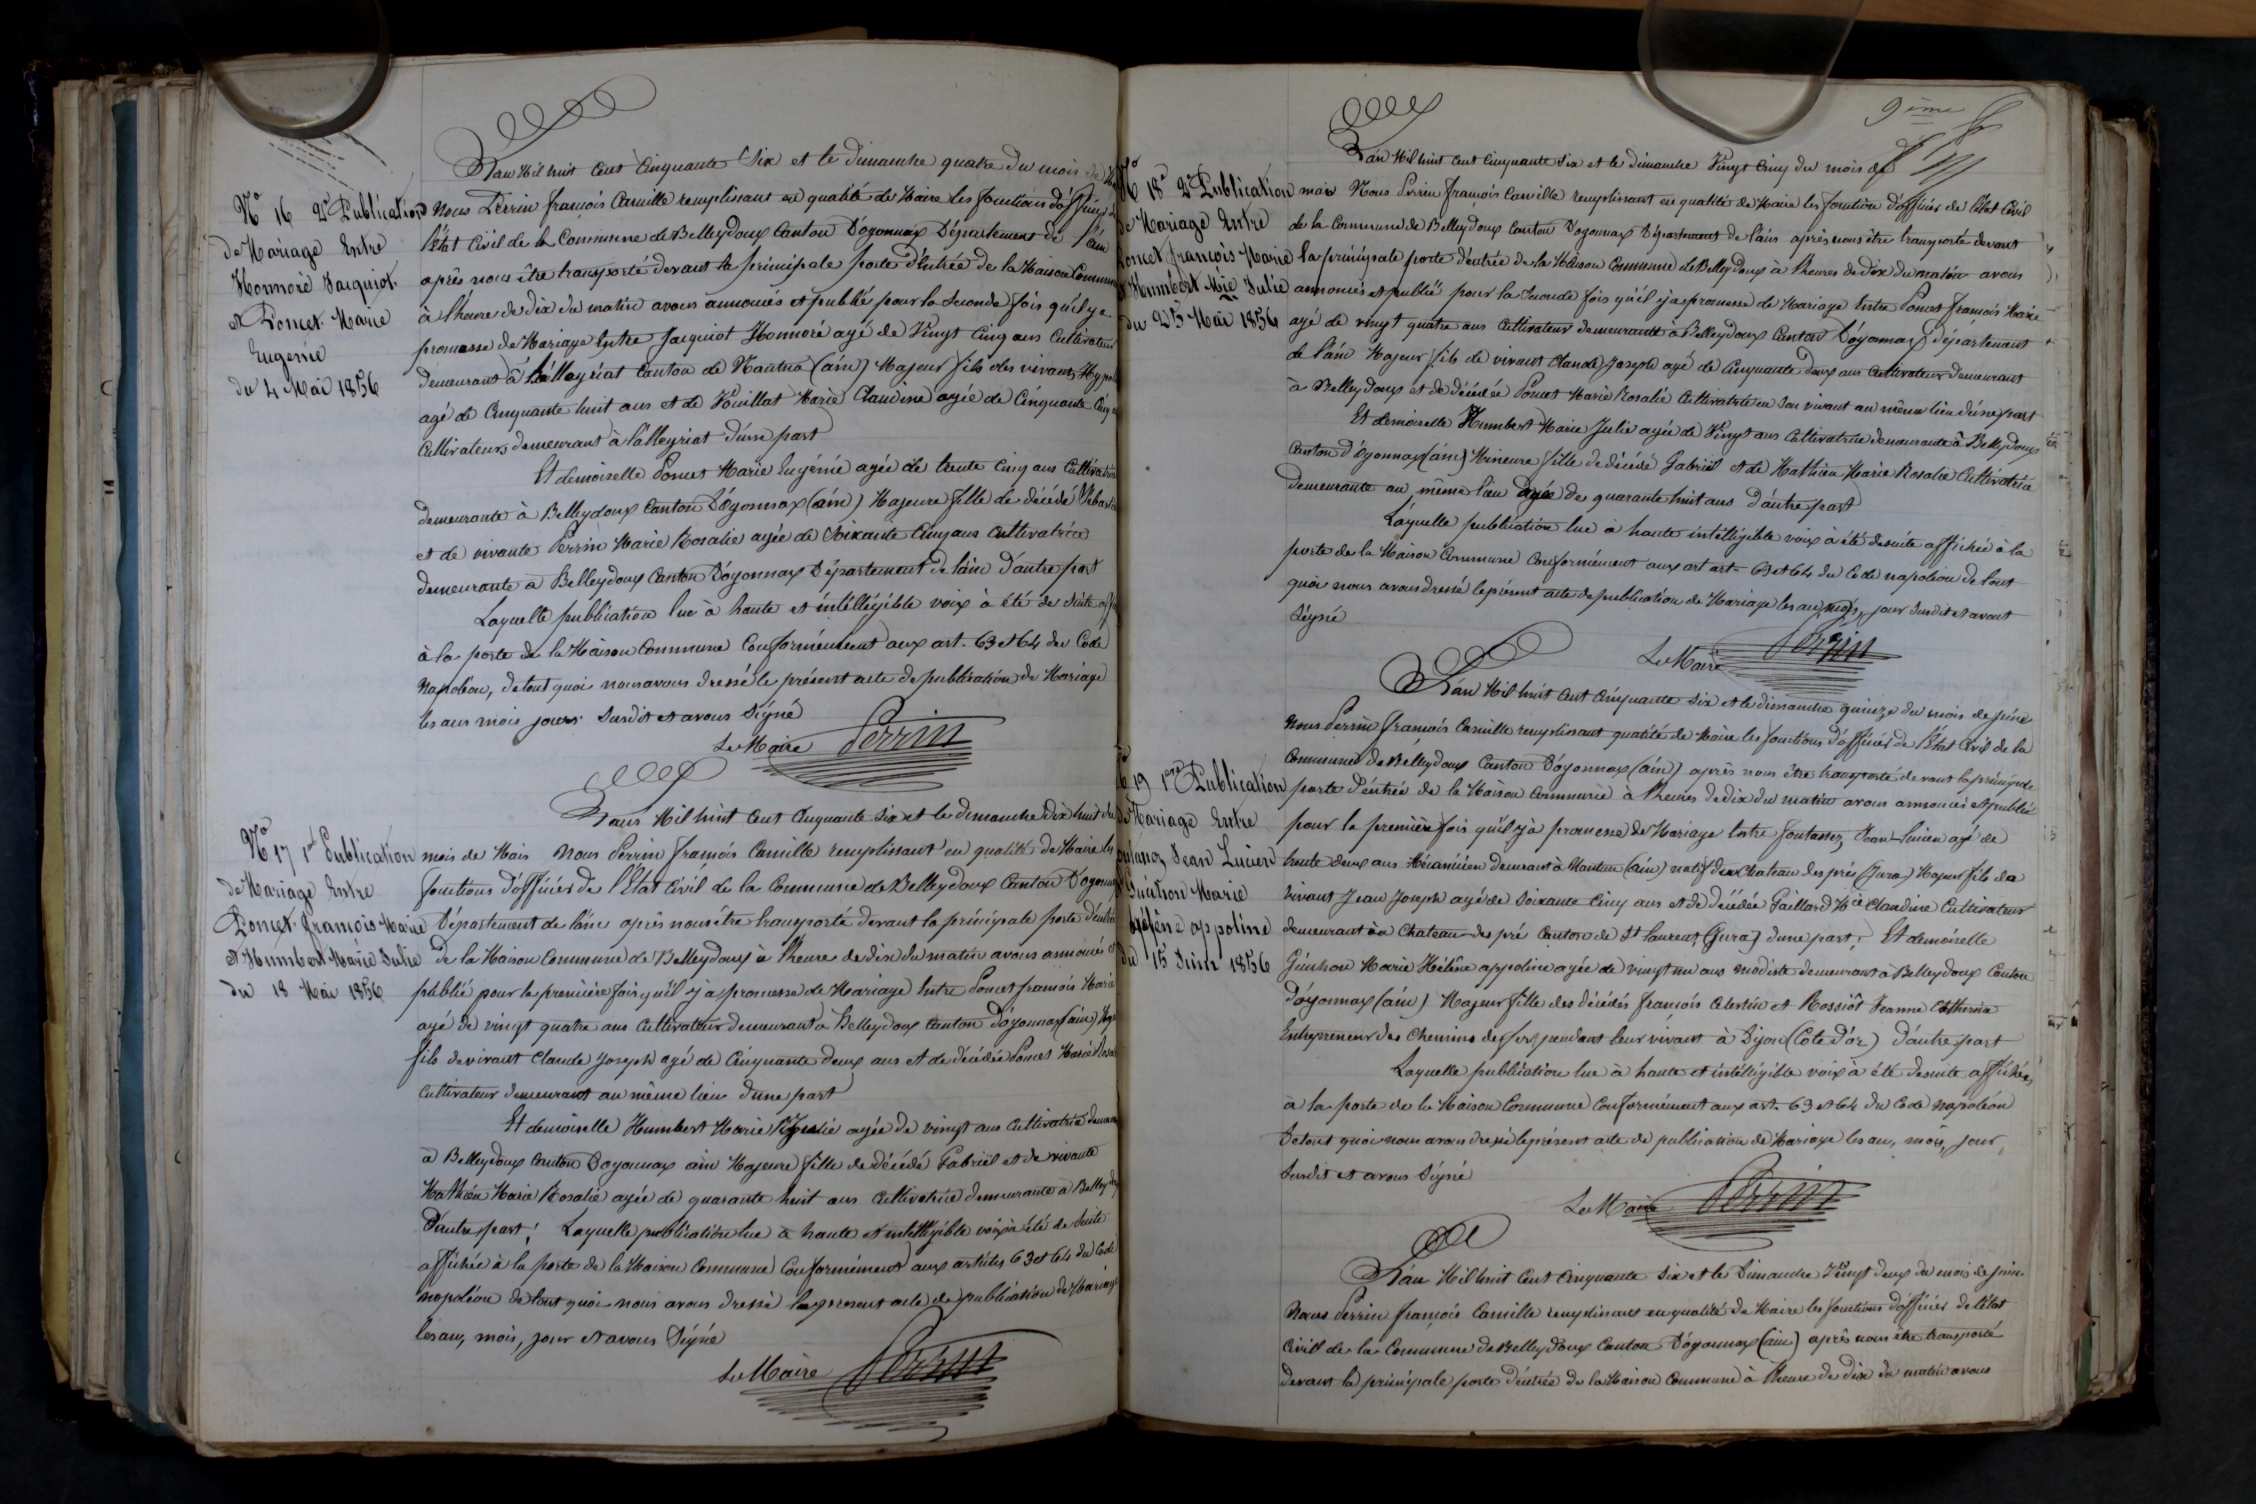 N° 16 2e Publication
de Mariage Entre
Honnoré Jacquiot
et Poncet Marie
Eugenie
du 4 Mai 1856
L'an Mil huit Cent Cinquante Six et le dimanche quatre du mois de
Nous Perrin françois Camille remplissant en qualité de Maire les fonctions d'officier de
l'État Civil de la Commune de Belleydoux Canton D'oyonnax Département de l'ain
après nous être transporté devant la principale porte d'Entrée de la Maison Commune
à l'heure de dix du matin avons annoncés et publié pour la seconde fois qu'il y a
promesse de Mariage Entre Jacquiot Honnoré agé de Vingt Cinq ans Cultivateur
demeurant à Lalleyriat Canton de Nantua (ain) Majeur fils des vivants
agé de Cinquante huit ans et de Vuillat Marie Claudine agée de Cinquante
Cultivateurs demeurant à Lalleyriat d'une part
Et demoiselle Poncet Marie Eugénie agée de trente Cinq ans Cultivatrice
demeurante à Belleydoux Canton D'oyonnax (ain) Majeure fille de décédé
et de vivante Perrin Marie Rosalie agée de Soixante Cinq ans Cultivatrice
demeurante à Belleydoux Canton D'oyonnax Département de l'ain D'autre part
Laquelle publication lue à haute et intélligible voix à été de suite
à la porte de la Maison Commune Conformément aux art. 63 et 64 du Code
Napoléon, de tout quoi nous avons dressé le présent acte de publication de Mariage
les ans mois jours Susdit et avons Signé
Le Maire Perrin
N° 17 1re Publication
de Mariage Entre
Poncet françois Marie
et Humbert Marie Julie
du 18 Mai 1856
L'ans Mil huit Cent Cinquante Six et le dimanche Dix huit du
mois de Mais Nous Perrin françois Camille remplissant en qualité de Maire les
fonctions d'officier de l'État Civil de la Commune de Belleydoux Canton D'oyonnax
Département de l'ain après nous être transporté devant la principale porte d'entrée
de la Maison Commune de Belleydoux à l'heure de dix du matin avons annoncés et
publié pour la première fois qu'il y a promesse de Mariage Entre Poncet françois Marie
agé de vingt quatre ans Cultivateur demeurant à Belleydoux Canton d'oyonnax (ain)
fils de vivant Claude Joseph agé de Cinquante deux ans et de décédée Poncet Marie
Cultivateur demeurant au même lieu d'une part
Et demoiselle Humbert Marie Julie agée de vingt ans Cultivatrice
à Belleydoux Canton D'oyonnax ain Majeure fille de décédé Gabriel et de vivante
Mathieu Marie Rosalie agée de quarante huit ans Cultivatrice demeurante à Belleydoux
D'autre part; Laquelle publication lue à haute et intelligible voix à été de suite
affichée à la porte de la Maison Commune Conformément aux articles 63 et 64 du Code
napoléon de tout quoi nous avons dressé le présent acte de publication de Mariage
les an, mois, jour et avons Signé
Le Maire Perrin
9ème
N° 18 2e Publication
de Mariage Entre
Poncet françois Marie
et Humbert Mie Julie
du 25 Mai 1856
L'an Mil huit Cent Cinquante Six et le dimanche Vingt Cinq du mois de
mai Nous Perrin françois Camille remplissant en qualité de Maire les fonctions d'officier de l'état Civil
de la Commune de Belleydoux Canton D'oyonnax Département de l'ain après nous être transporté devant
la principale porte d'entrée de la Maison Commune de Belleydoux à l'heures de dix du matin avons
annoncés et publié pour la seconde fois qu'il y a promesse de Mariage Entre Poncet françois Marie
agé de vingt quatre ans Cultivateur demeurant à Belleydoux Canton D'oyonnax département
de l'ain Majeur fils de vivant Claude Joseph agé de Cinquante deux ans Cultivateur demeurant
à Belleydoux et de décédée Poncet Marie Rosalie Cultivatrice en son vivant au même lieu d'une part
Et demoiselle Humbert Marie Julie agée de Vingt ans Cultivatrice demeurante à Belleydoux
Canton d'oyonnax (ain) Mineure fille de décédé Gabriel et de Mathieu Marie Rosalie Cultivatrice
demeurante au même lieu agée de quarante huit ans D'autre part
Laquelle publication lue à haute intélligible voix à été de suite affichée à la
porte de la Maison Commune Conformément aux art art. 63 et 64 du Code napoléon de tout
quoi nous avons dressé le présent acte de publication de Mariage les an, mois, jour susdit et avont
Signé
Le Maire Perrin
N° 19 1ere Publication
de Mariage Entre
Jean Lucien
Marie
Hélène appoline
du 15 Juin 1856
L'an Mil huit Cent Cinquante Six et le dimanche quinze du mois de juin
Nous Perrin françois Camille remplissant qualité de Maire les fonctions d'officier de l'État Civil de la
Commune de Belleydoux Canton D'oyonnax (ain) après nous être transporté devant la principale
porte d'entrée de la Maison Commune à l'heures de dix du matin avons annoncés et publié
pour la première fois qu'il y a promesse de Mariage Entre Jean Lucien agé de
trente deux ans Mécanicien demeurant à Nantua (ain) natif de Chateau des prés (Jura) Majeur fils de
vivant Jean Joseph agé de Soixante Cinq ans et de décédée Gaillard Mie Claudine Cultivateur
demeurant à Chateau des pré Canton de St Laurent (Jura) d'une part; Et demoiselle
Marie Hélène appoline agée de vingt un ans modiste demeurant à Belleydoux Canton
D'oyonnax (ain) Majeur fille des décédés françois Celestin et Rossiot Jeanne Catherine
Entrepreneur des Chemins de fer pendant leur vivant à Dijon (Cote D'or) D'autre part
Laquelle publication lue à haute et intélligible voix à été de suite affichée
à la porte de la Maison Commune Conformément aux art. 63 et 64 du Code napoléon
De tout quoi nous avons dressé le présent acte de publication de Mariage les an, mois, jour,
Susdit et avons Signé
Le Maire Perrin
L'an Mil huit Cent Cinquante Six et le Dimanche Vingt deux du mois de juin
Nous Perrin françois Camille remplissant en qualité de Maire les fonctions d'officier de l'état
Civill de la Commune de Belleydoux Canton D'oyonnax (ain) après nous être transporté
devant la principale porte d'entrée de la Maison Commune à l'heure de dix du matin avons